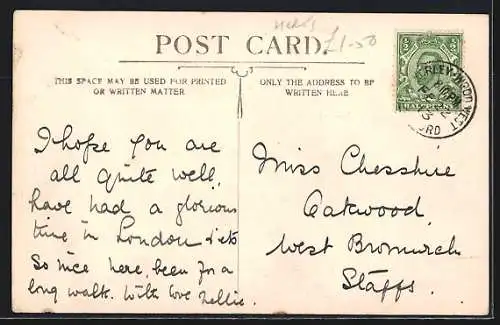 Herts
£1-50
POST CARD.
THIS SPACE MAY BE USED FOR PRINTED
OR WRITTEN MATTER
ONLY THE ADDRESS TO BE
WRITTEN HERE
HALFPENNY
I hope you are
all quite well,
have had a glorious
time in London & its
So nice here, been for a
long walk. With love Nellie.
Miss Chesshire
Oakwood,
West Bromwich
Staffs.